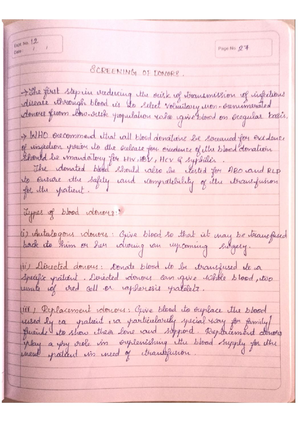 Page No. 27
SCREENING OF DONORS.
→ The first step in reducing the risk of transmission of infectious
disease through blood is to select voluntary non-remunerated
donors from low-risk population who give blood on regular basis.
→ WHO recommend that all blood donations be screened for evidence
of infection prior to the release for evidence of the blood donation
should be mandatory for HIV, HBV, HCV & Syphilis.
The donated blood should also be tested for ABO and RLP
to ensure the safety and compatibility of the transfusion
for the patient.
Types of blood donors:
i) Autologous donors: Give blood so that it may be transfused
back to him or her during an upcoming surgery.
ii) Directed donors: Donate blood to be transfused to a
specific patient. Directed donors can give whole blood, two
units of red cell or apheresis platelets.
iii) Replacement donors: Give blood to replace the blood
used by a patient in particularly special way for family/
friends to show their love and support. Replacement donors
play a key role in replenishing the blood supply for the
next patient in need of transfusion